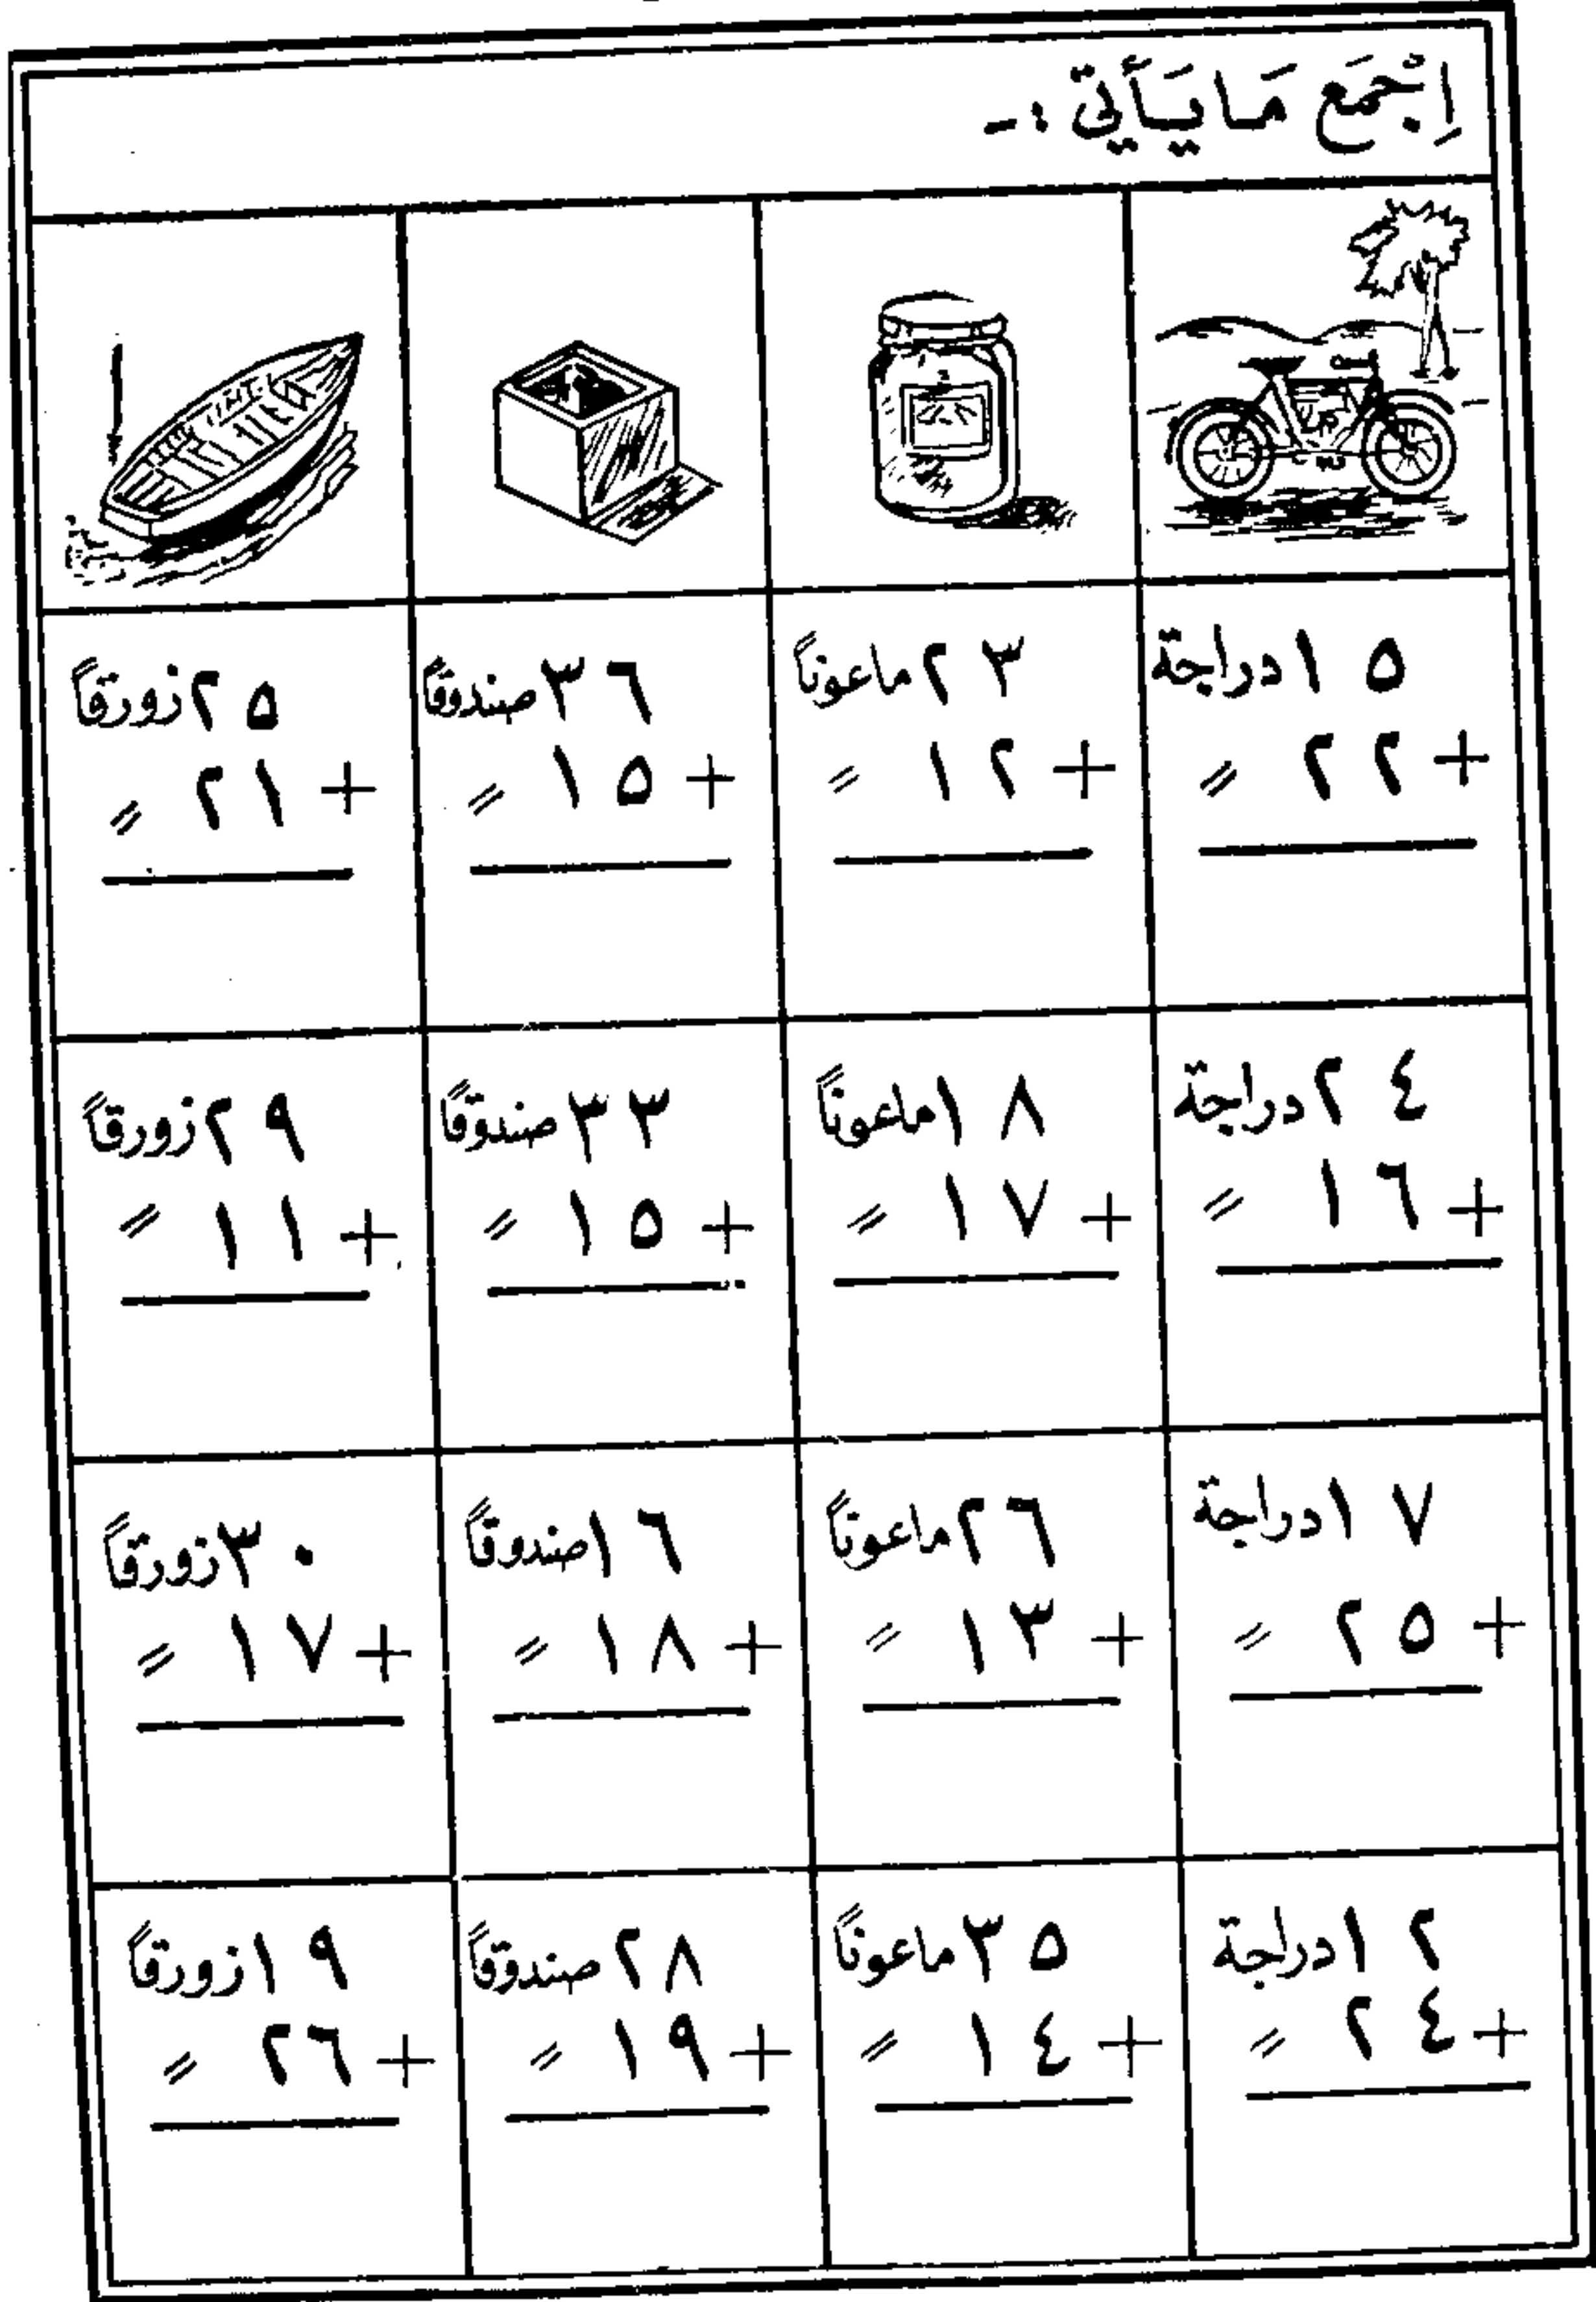 اِجْمَع مَا يَأَتي :-
١٥ دراجة
+ ٢٢ 〃
٢٣ ماعوناً
+ ١٢ 〃
٣٦ صندوقاً
+ ١٥ 〃
٢٥ زورقاً
+ ٢١ 〃
٢٤ دراجة
+ ١٦ 〃
١٨ ماعوناً
+ ١٧ 〃
٣٣ صندوقاً
+ ١٥ 〃
٢٩ زورقاً
+ ١١ 〃
١٧ دراجة
+ ٢٥ 〃
٢٦ ماعوناً
+ ١٣ 〃
١٦ صندوقاً
+ ١٨ 〃
٣٠ زورقاً
+ ١٧ 〃
١٢ دراجة
+ ٢٤ 〃
٣٥ ماعوناً
+ ١٤ 〃
٢٨ صندوقاً
+ ١٩ 〃
١٩ زورقاً
+ ٢٦ 〃